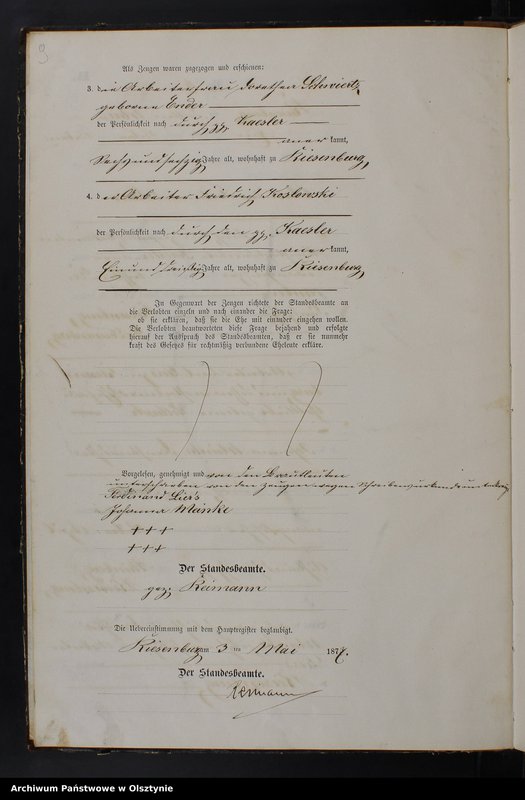 Als Zeugen waren zugezogen und erschienen:
3. die Arbeiterfrau Dorothea Schwertz
geborne Ender
der Persönlichkeit nach durch pp. Kaesler
aner kannt,
Sechsundsechzig Jahre alt, wohnhaft zu Riesenburg,
4. der Arbeiter Friedrich Koslowski
der Persönlichkeit nach durch den pp. Kaesler
aner kannt,
Einunddreißig Jahre alt, wohnhaft zu Riesenburg,
In Gegenwart der Zeugen richtete der Standesbeamte an
die Verlobten einzeln und nach einander die Frage:
ob sie erklären, daß sie die Ehe mit einander eingehen wollen.
Die Verlobten beantworteten diese Frage bejahend und erfolgte
hierauf der Ausspruch des Standesbeamten, daß er sie nunmehr
kraft des Gesetzes für rechtmäßig verbundene Eheleute erkläre.
Vorgelesen, genehmigt und von den Brautleuten
unterschrieben von den Zeugen wegen Schreibensunkunde
Ferdinand Liers
Johanna Manke
+++
+++
Der Standesbeamte.
gez. Reimann
Die Uebereinstimmung mit dem Hauptregister beglaubigt.
Riesenburg am 3 ten Mai 187
Der Standesbeamte.
Reimann
Archiwum Państwowe w Olsztynie